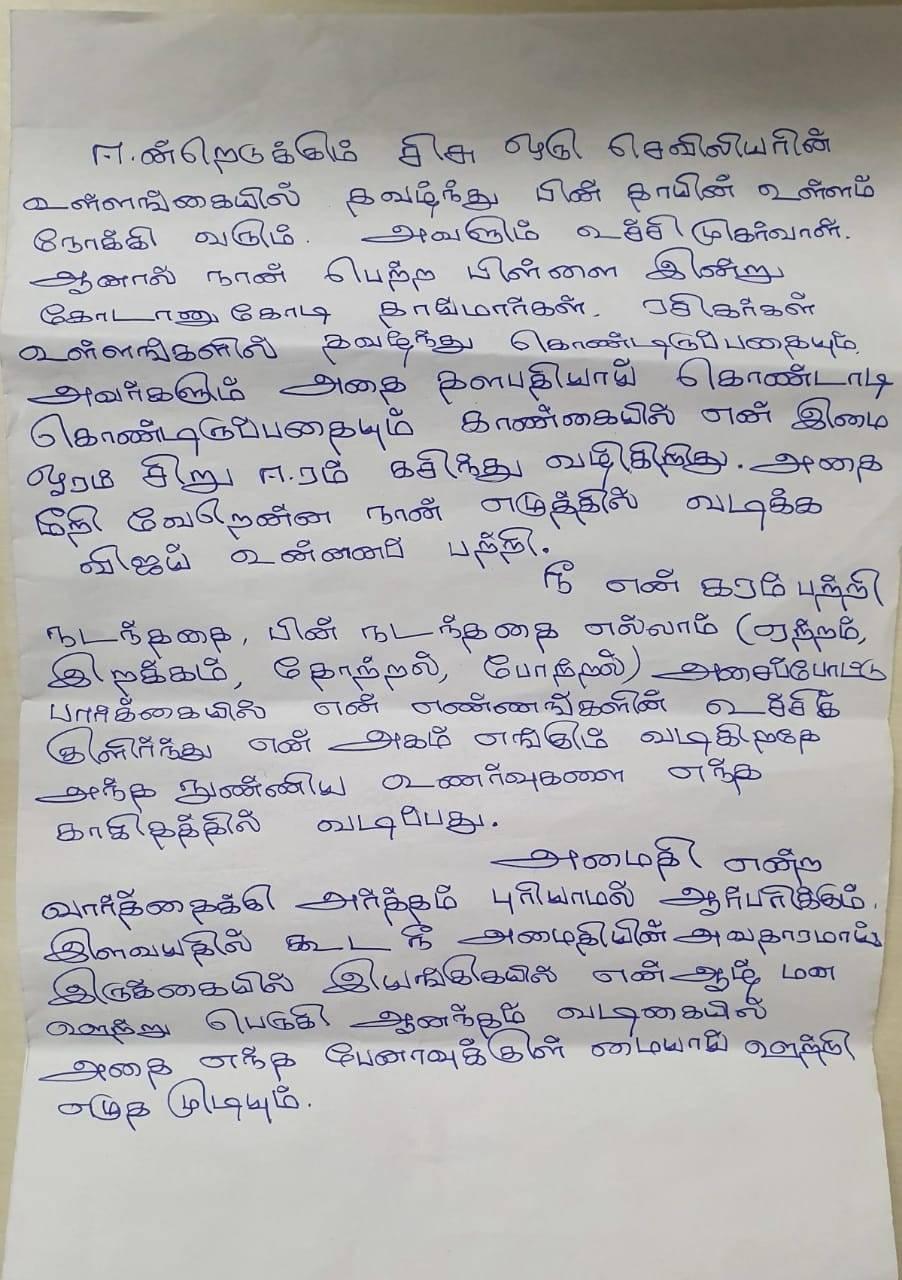 ஈன்றெடுக்கும் சிசு ஒரு செவிலியரின்
உள்ளங்கையில் தவழ்ந்து பின் தாயின் உள்ளம்
நோக்கி வரும். அவளும் உச்சி முகர்வாள்.
ஆனால் நான் பெற்ற பிள்ளை இன்று
கோடானு கோடி தாய்மார்கள், ரசிகர்கள்
உள்ளங்களில் தவழ்ந்து கொண்டிருப்பதையும்,
அவர்களும் அதை தளபதியாய் கொண்டாடி
கொண்டிருப்பதையும் காண்கையில் என் இமை
ஓரம் சிறு ஈரம் கசிந்து வழிகிறது. அதை
மீறி வேறென்ன நான் எழுத்தில் வடிக்க
விஜய் உன்னைப் பற்றி.
நீ என் கரம் பற்றி
நடந்ததை, பின் நடந்ததை எல்லாம் (ஏற்றம்,
இறக்கம், தோற்றல், போற்றல்) அசைப்போட்டு
பார்க்கையில் என் எண்ணங்களின் உச்சி
குளிர்ந்து என் அகம் எங்கும் வடிகிறதே
அந்த நுண்ணிய உணர்வுகளை எந்த
காகிதத்தில் வடிப்பது.
அமைதி என்ற
வார்த்தைக்கு அர்த்தம் புரியாமல் ஆர்பரிக்கும்.
இளவயதில் கூட நீ அமைதியின் அவதாரமாய்
இருக்கையில் இயங்குகையில் என் ஆழ் மன
ஊற்று பெருகி ஆனந்தம் வடிகையில்
அதை எந்த பேனாவுக்குள் மையாய் ஊற்றி
எழுத முடியும்.